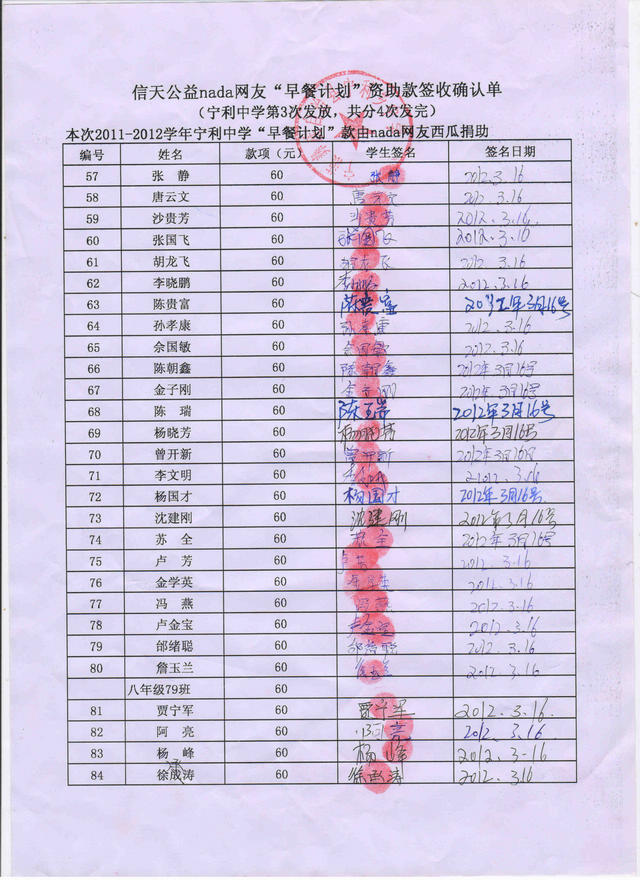 信天公益nada网友“早餐计划”资助款签收确认单
（宁利中学第3次发放，共分4次发完）
本次2011-2012学年宁利中学“早餐计划”款由nada网友西瓜捐助
编号 姓名 款项（元） 学生签名 签名日期
57 张 静 60 张静 2012.3.16
58 唐云文 60 唐云文 2012.3.16
59 沙贵芳 60 沙贵芳 2012.3.16
60 张国飞 60 张国飞 2012.3.16
61 胡龙飞 60 胡龙飞 2012.3.16
62 李晓鹏 60 2012.3.16
63 陈贵富 60 陈贵富 3月16号
64 孙孝康 60 孙孝康 2012.3.16
65 佘国敏 60 佘国敏 2012.3.16
66 陈朝鑫 60 陈朝鑫 2012年3月16号
67 金子刚 60 金子刚 2012年3月16号
68 陈 瑞 60 陈瑞 2012年3月16号
69 杨晓芳 60 杨晓芳 2012年3月16号
70 曾开新 60 曾开新 2012年3月16日
71 李文明 60 2012.3.16
72 杨国才 60 杨国才 2012年3月16号
73 沈建刚 60 沈建刚 2012年3月16号
74 苏 全 60 苏全 2012年3月16号
75 卢 芳 60 卢芳 2012.3.16
76 金学英 60 金学英 2012.3.16
77 冯 燕 60 冯燕 2012.3.16
78 卢金宝 60 卢金宝 2012.3.16
79 邰绪聪 60 邰绪聪 2012.3.16
80 詹玉兰 60 2012.3.16
八年级79班 60
81 贾宁军 60 贾宁军 2012.3.16
82 阿 亮 60 阿亮 2012.3.16
83 杨 峰 60 杨峰 2012.3-16
84 徐成涛 60 徐承涛 2012.3.16